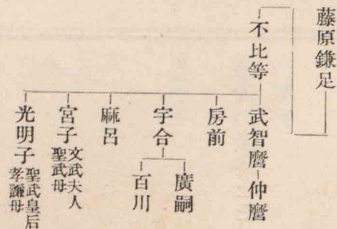 藤原鎌足
不比等
武智麿
仲麿
房前
宇合
廣嗣
百川
麻呂
宮子
文武夫人
聖武母
光明子
聖武皇后
孝謙母